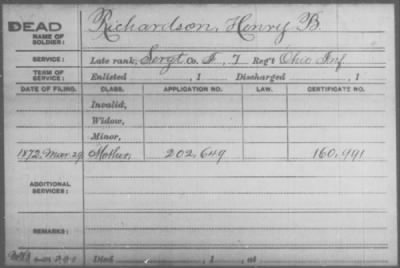 DEAD
Richardson, Henry B.
NAME OF SOLDIER:
SERVICE: Late rank, Sergt Co. F, 7 Reg't Ohio Inf
TERM OF SERVICE: Enlisted , 1 Discharged , 1
DATE OF FILING. CLASS. APPLICATION NO. LAW. CERTIFICATE NO.
Invalid,
Widow,
Minor,
1872, Mar. 29 Mother, 202,649 160,991
ADDITIONAL SERVICES:
REMARKS:
Died , 1 , at